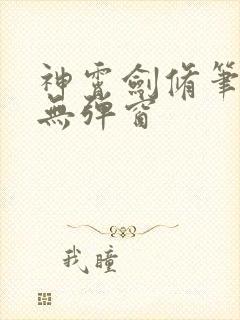 神霄劍脩筆
無彈窗
我瞳